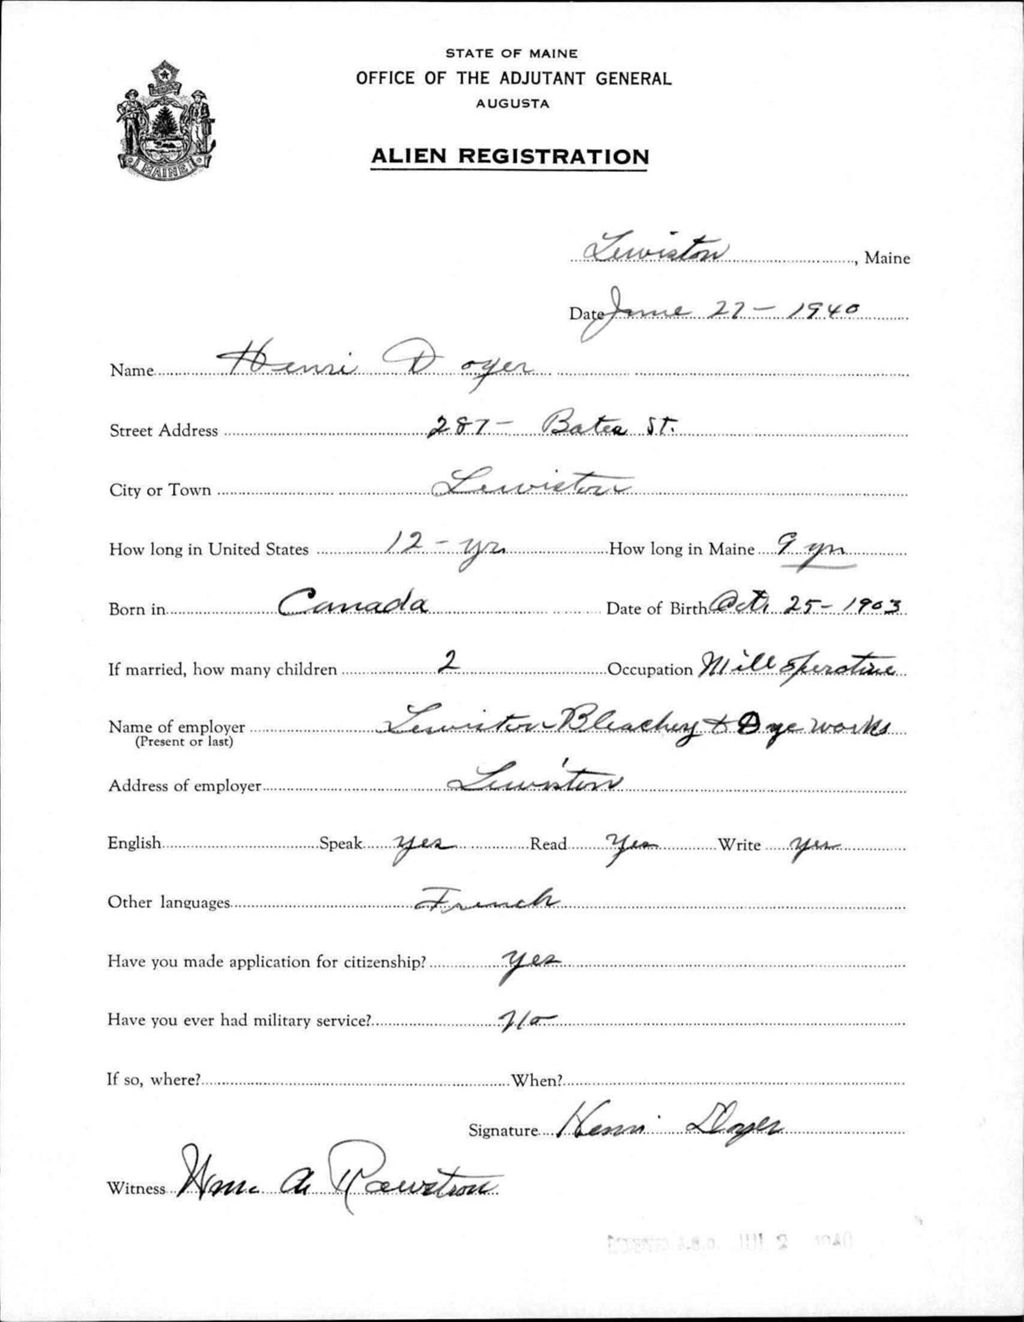 STATE OF MAINE
OFFICE OF THE ADJUTANT GENERAL
AUGUSTA
MAINE
ALIEN REGISTRATION
Lewiston, Maine
Date June 27 - 1940
Name Henri Doyer
Street Address 287 - Bates St.
City or Town Lewiston
How long in United States 12 - yrs How long in Maine 9 yrs
Born in Canada Date of Birth Oct. 25 - 1903
If married, how many children 2 Occupation Mill Operative
Name of employer Lewiston Bleachey & Dye works
(Present or last)
Address of employer Lewiston
English Speak yes Read Yes Write yes
Other languages French
Have you made application for citizenship? yes
Have you ever had military service? No
If so, where? When?
Signature Henri Doyer
Witness Wm. A Rawstron